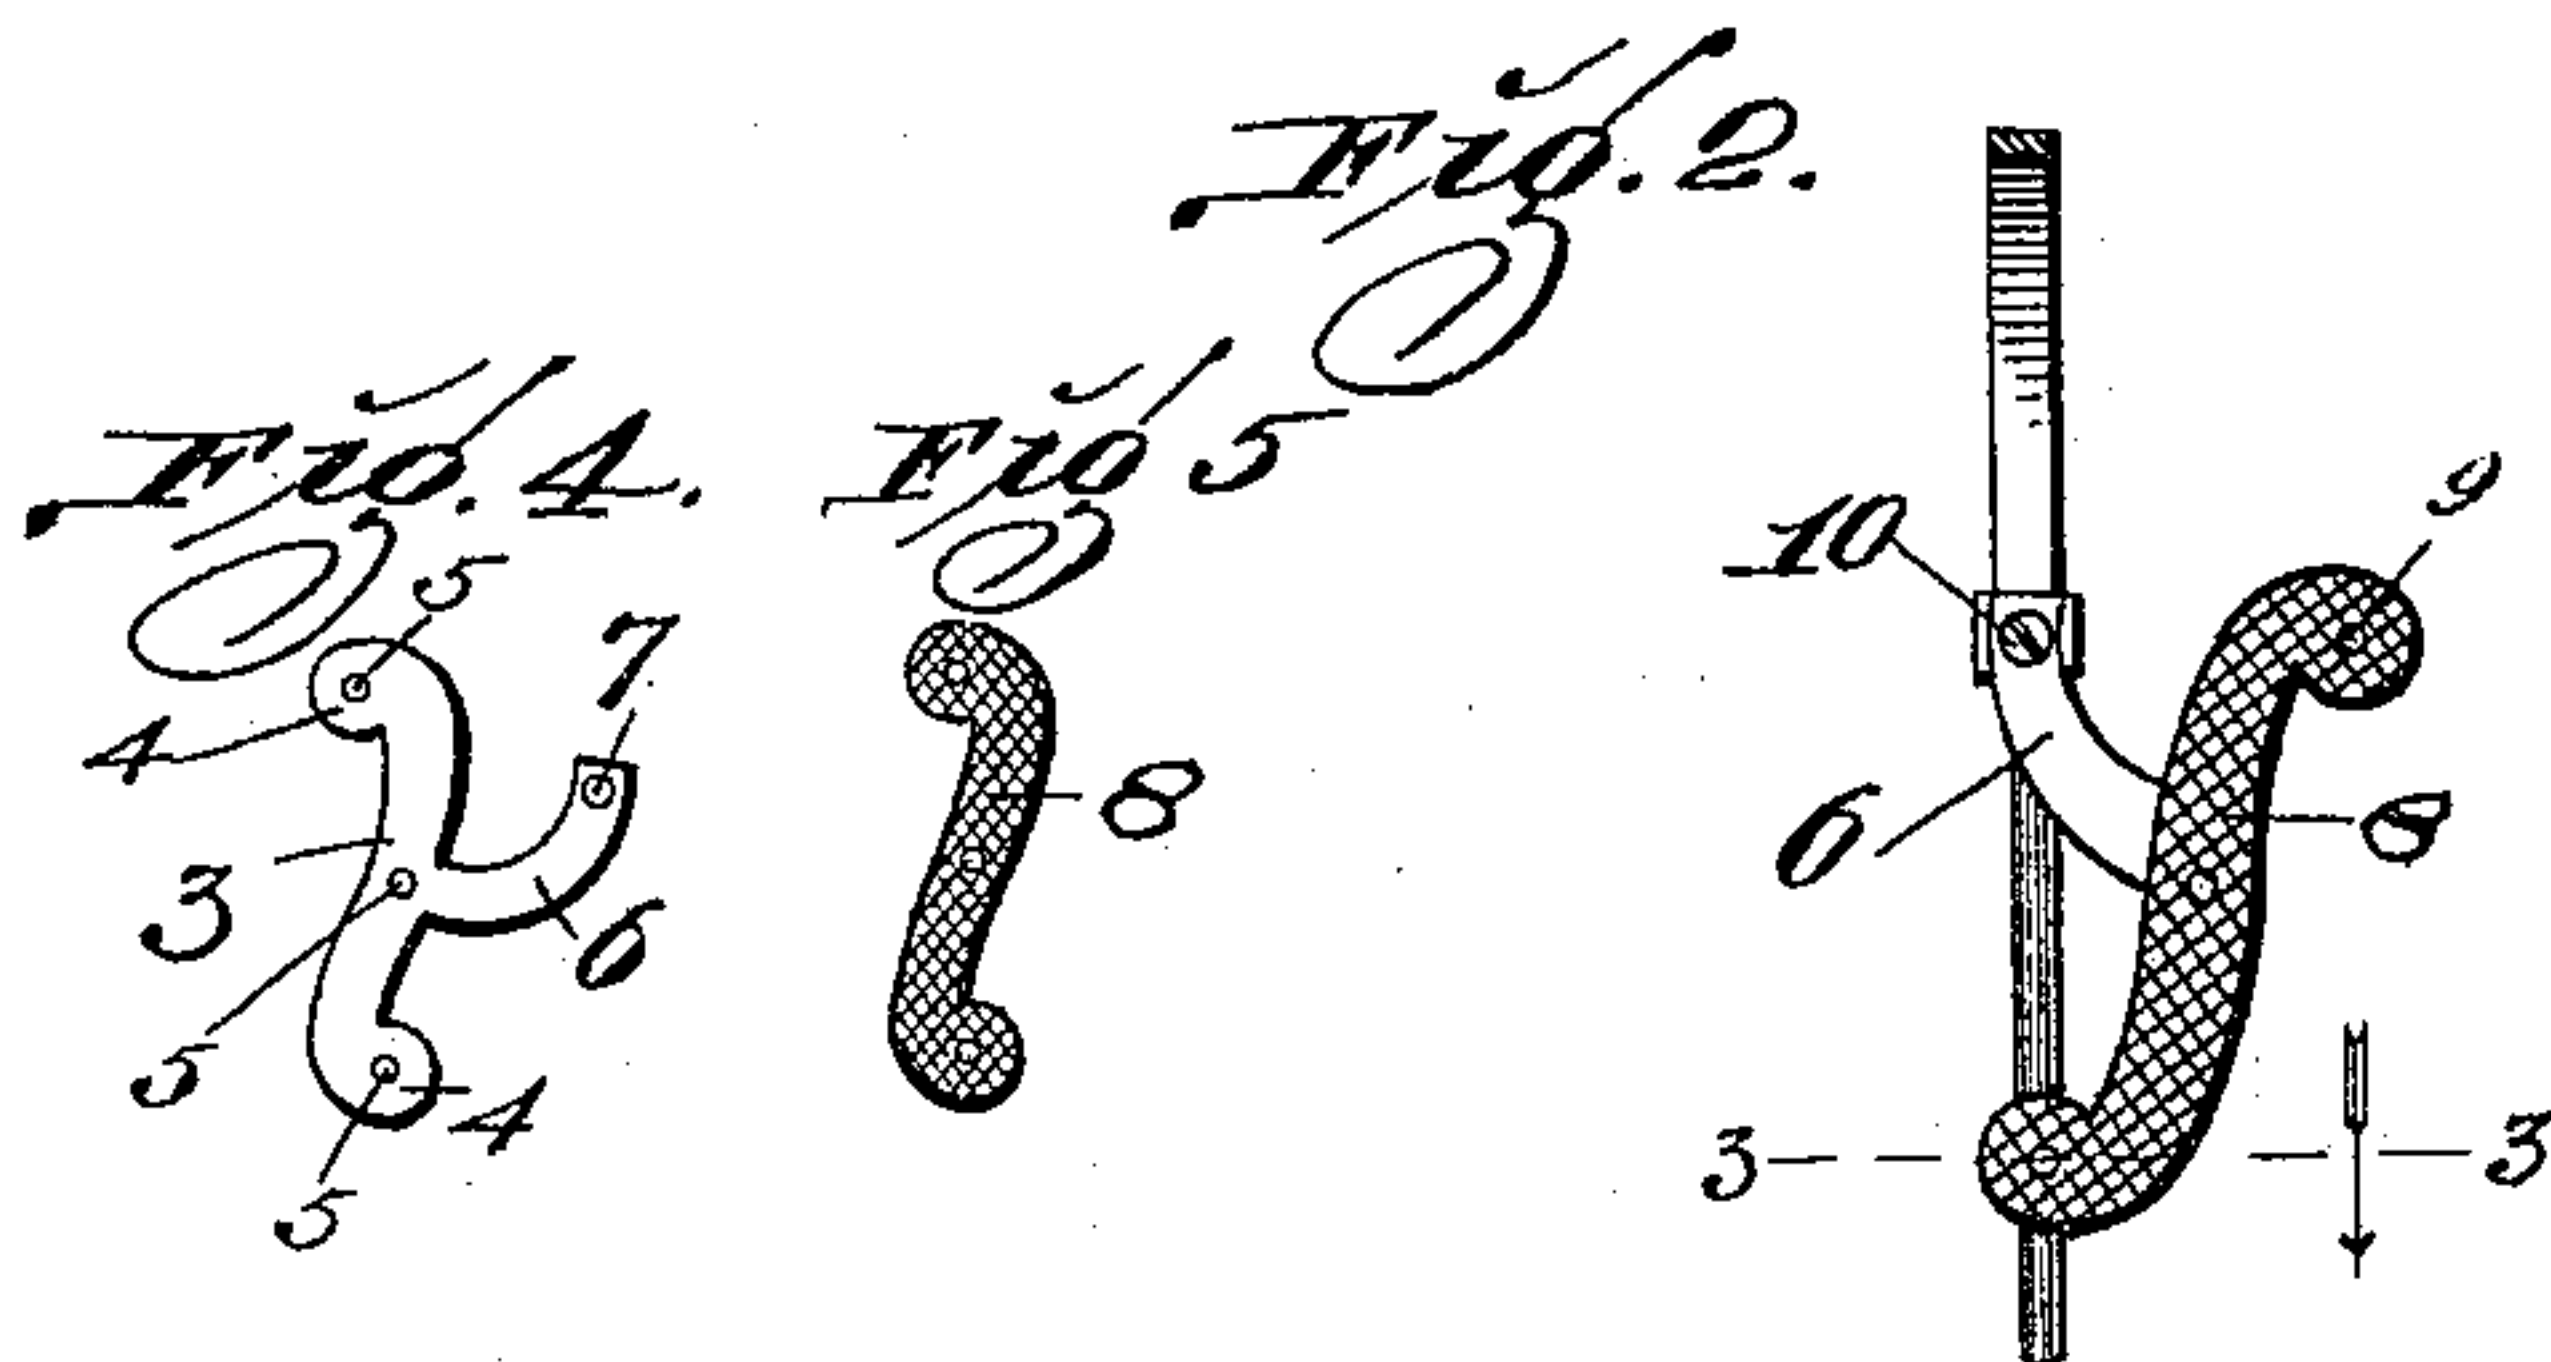 Fig. 2.
Fig. 4.
Fig 5
5
7
4
3
5
6
4
5
8
9
10
6
8
3
3